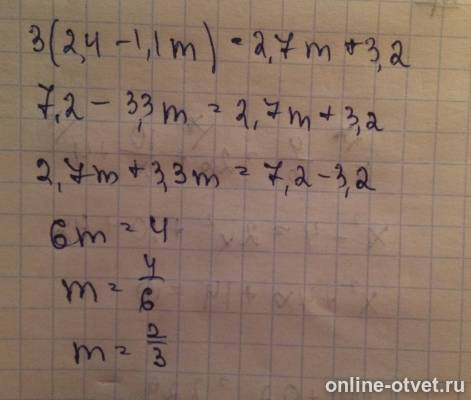 3(2,4 - 1,1m) = 2,7m + 3,2
7,2 - 3,3m = 2,7m + 3,2
2,7m + 3,3m = 7,2 - 3,2
6m = 4
m = 4/6
m = 2/3
online-otvet.ru